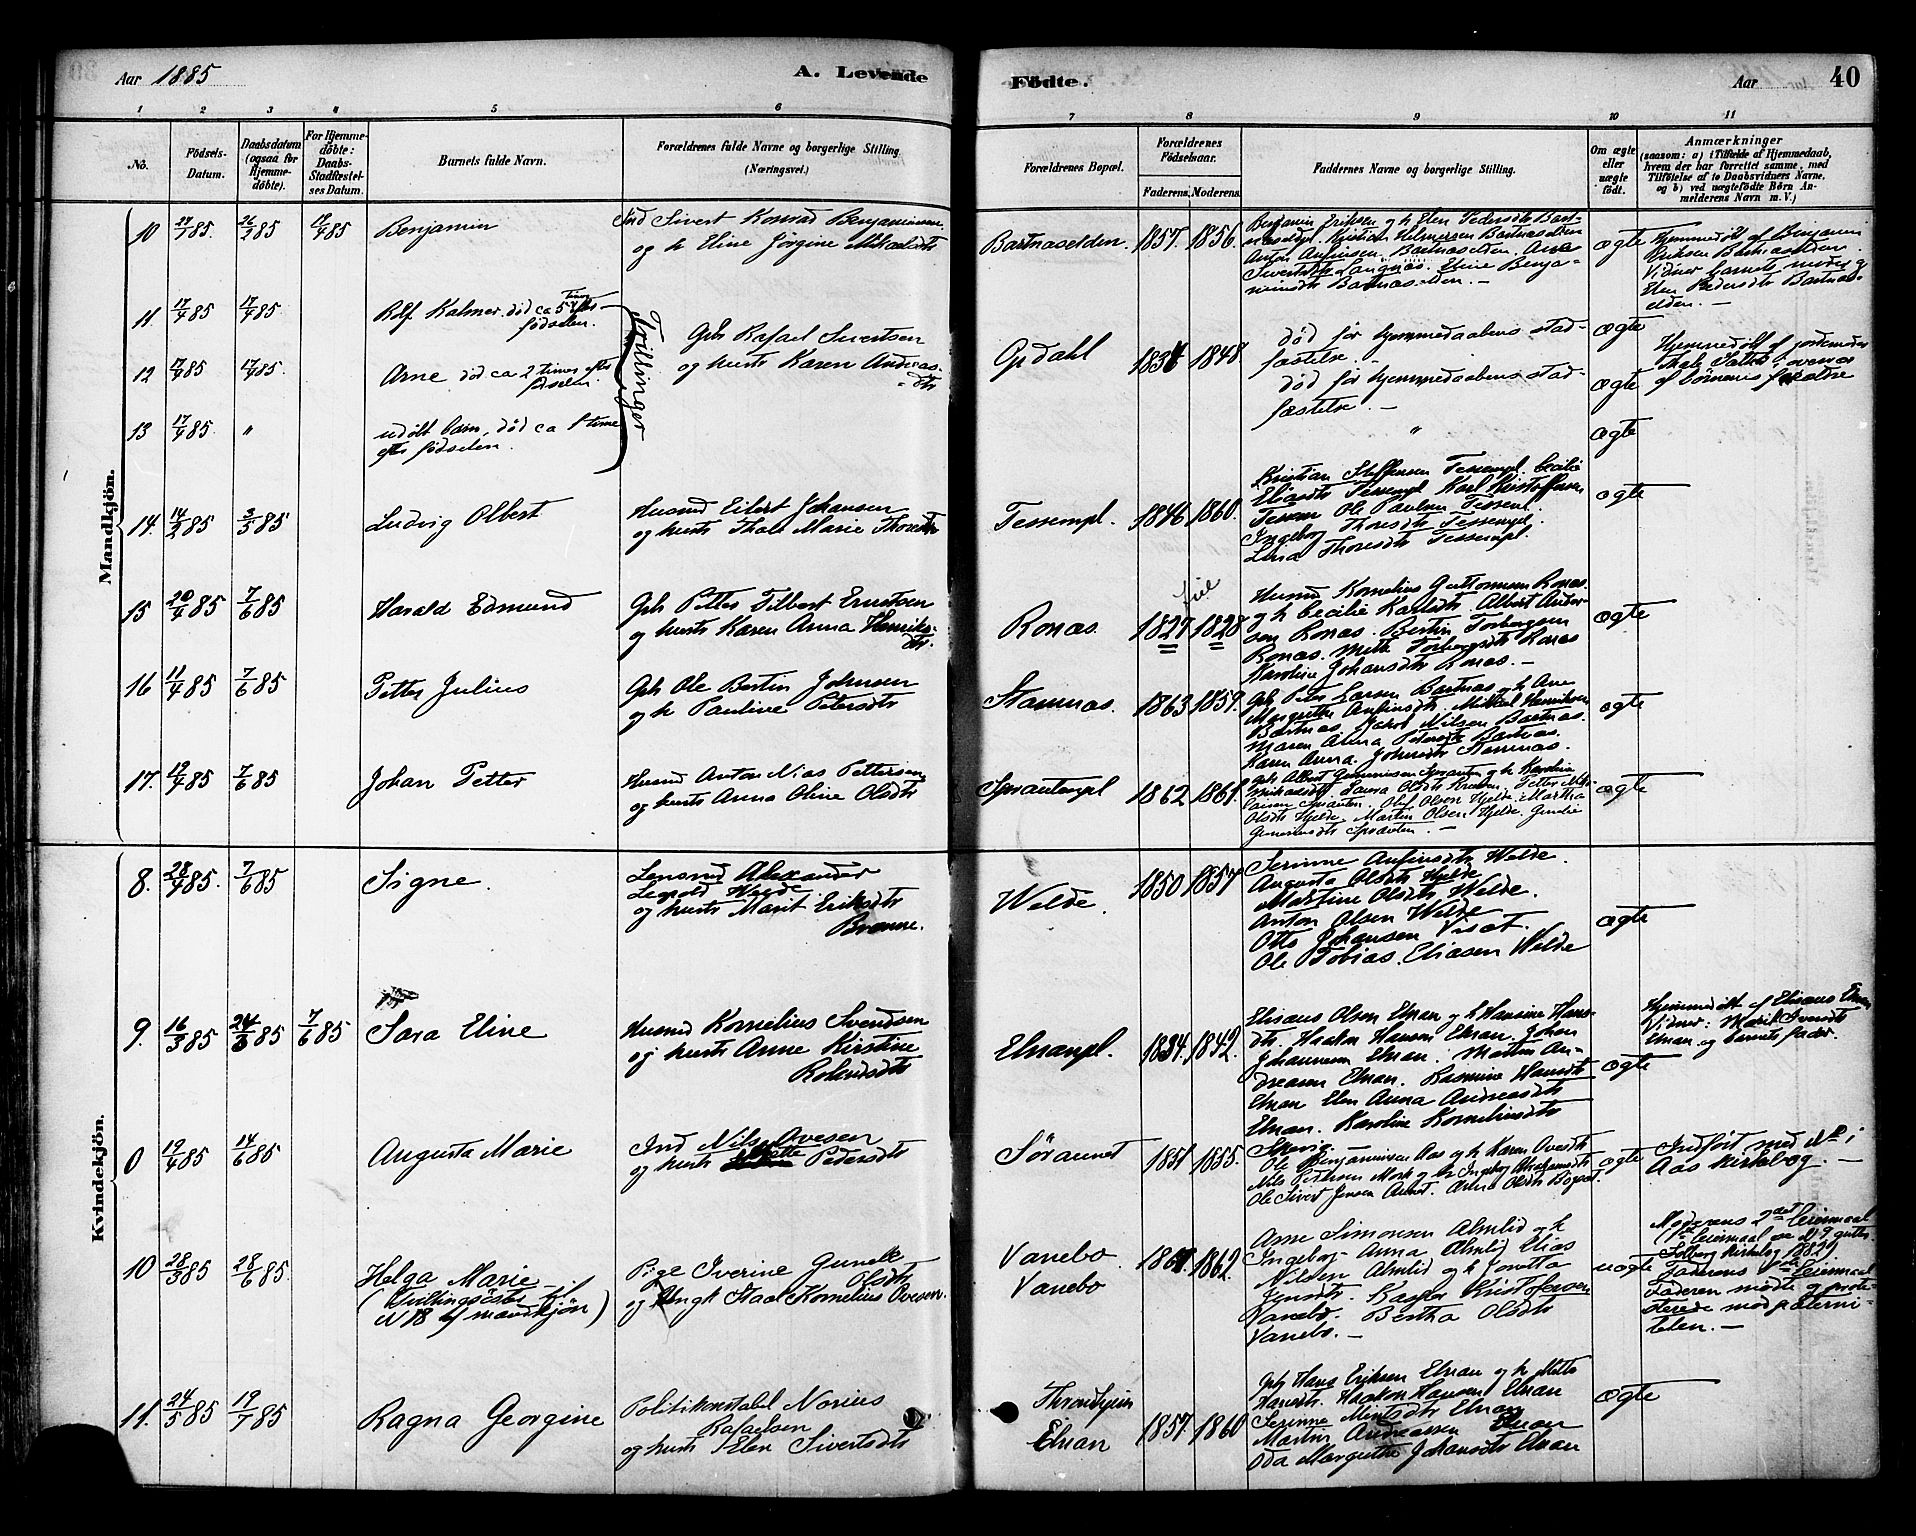 Aar 1885
A. Levende
Födte.
Aar
40
1 2 3 4 5 6 7 8 9 10 11
No.
Födsels-
Datum.
Daabsdatum
(ogsaa for
Hjemme-
döbte).
For Hjemme-
döbte:
Daabs-
Stadfæstel-
ses Datum.
Barnets fulde Navn.
Forældrenes fulde Navne og borgerlige Stilling.
(Næringsvei.)
Forældrenes Bopæl.
Forældrenes
Födselsaar.
Faderens. Moderens.
Faddernes Navne og borgerlige Stilling.
Om ægte
eller
uægte
födt.
Anmærkninger
(saasom: a) i Tilfælde af Hjemmedaab,
hvem der har forrettet samme, med
Tilföielse af to Daabsvidners Navne,
og b) ved uægtefödte Börn An-
melderens Navn m. V.)
Mandkjön.
10
Benjamin
Ind Sivert Konrad Benjaminsen
og h Eline Jörgine
Bartnaselden. 1857. 1856.
Benjamin Eriksen og h Elen Pedersdtr Bart-
naseldet. Kristian Helmersen Bartnaselden
Anton Anfinsen Bartnaselden. Ane
Sivertsdtr Langnæs. Eline Benja-
minsdtr Bartnaselden. —
ægte
Hjemmedöbt af Benjamin
Eriksen Bartnaselden.
Vidner barnets moder og
Elen Pedersdtr Bartnas-
elden. —
11 17/4 85 17/4 85
Rolf Kalmer, död ca 5 timer efter
födselen.
Trillinger
Gbr Rafael Sivertsen
og hustr Karen Andreas-
dtr
Opdahl 1834 1848.
död för hjemmedaabens stad-
fæstelse. —
ægte
Hjemmedöbt af jordemoder
overvær
af börnenes forældre
12 17/4 85 17/4 85
Arne död ca 2 timer efter
födselen.
död för hjemmedaabens stad-
fæstelse. —
ægte
13 17/4 85. "
udöbt barn, död ca 1 time
efter födselen.
"
ægte
14. 14/2 85 3/5 85
Ludvig Olbert
Husmd Eilert Johansen
og hustr Thale Marie Thoresdtr
Tessempl. 1846 1860.
Kristian Steffensen Tessempl. Cecilie
Eliasdtr Tessempl Karl Kristoffersen
Tessem Ole Paulsen Tessem.
Ingeborg Thoresdtr Tessempl.
Lina Thoresdtr Tessempl.
ægte
15 20/4 85 7/6 85
Harald Edmund
Gbr Petter Tilbert Erntsen
og hustr Karen Anna Henriks-
dtr.
Ronæs. 1827 1828
Husmd Kornelius Guttormsen Ronæs.
og h Cecilie Karlsdtr. Albert Ander-
sen Ronæs. Bertin Torbergsen
Ronæs. Mette Torbergsdtr Ronæs
Karoline Johansdtr Ronæs. —
ægte
16 11/4 85 7/6 85
Petter Julius
Gbr Ole Bertin Johnsen
og h Pauline Petersdtr
Stamnæs. 1863 1859.
Gbr Peter Larsen Bartnæs og h Ane
Margrethe Anfinsdtr. Mikkel Henriksen
Bartnæs. Jakob Nilsen Bartnæs.
Maren Anna Petersdtr Bartnæs.
Karen Anna Johnsdtr Stamnæs.
ægte
17. 19/4 85 7/6 85
Johan Petter
Husmd Anton Nias Pettersen
og hustr Anna Oline Olsdtr
Sprautenpl 1862 1861.
Olsdtr Hjelde. Martin Olsen Hjelde.
ægte
Kvindekjön.
8. 28/4 85. 7/6 85
Signe.
Lensmd Alexander
Leopold Welde
og hustr Marit Eriksdtr
Brænne.
Welde. 1850 1857
Serinne Anfinsdtr Welde.
Augusta Olsdtr Hjelde
Martine Olsdtr Welde.
Anton Olsen Welde
Otto Johansen Visæt.
Ole Tobias Eliasen Welde
ægte
9. 16/3 85 24/3 85 7/6 85
Sara Eline
Husmd Kornelius Svendsen
og hustr Anne Kirstine
Rolandsdtr
Elnanpl. 1834. 1842.
Elisæus Olsen Elnan og h Hansine Hans-
dtr. Haakon Hansen Elnan. Johan
Johannesen Elnan. Martin An-
dreasen Elnan. Rasmine Hansdtr
Elnan Elen Anna Andreasdtr
Elnan. Karoline Korneliusdtr
ægte
Hjemmedöbt af Elisæus Elnan
Vidner: Marit Iversdtr
Elnan og barnets fader.
0 19/4 85 14/6 85
Augusta Marie
Ind Nils Ovesen
og hustr Mette Pedersdtr
Söraunet 1851 1855.
Ole Benjaminsen Aas og h Karen Ovesdtr
Nils Pedersen Mork og h Ingeborg Abrahamsdtr
Ole Sivert Jensen Aunet. Anna Olsdtr
ægte
Indfört med No i
Aas kirkebog. —
10 28/3 85 28/6 85.
Helga Marie
(Tvillingsöster til
N 18 af mandkjön)
Pige Iverine Gunelie
Olsdtr
og Ungk Staal Kornelius Ovesen.
Vanebo
Vanebo 1861. 1862.
Arne Simonsen Almlid og h
Ingeborg Anna Almlid Elias
Nilsen Almlid og h Jonetta
Jensdtr. Kasper Kristofersen
Vanebo. Bertha Olsdtr
Vanebo. —
uægte
Moderens 2det leiermaal
(1ste leiermaal se N 9 gutter
Solberg kirkebog 1882).
Faderens 1ste leiermaal
Faderen mödte og prote-
sterede mod paterni-
teten. —
11. 24/5 85 19/7 85
Ragna Georgine
Politikonstabel Norius
Rafaelsen
og hustr Elen Sivertsdtr
Throndhjem
Elnan 1857. 1860
Gbr Hans Eriksen Elnan og h Mette
Hansdtr. Haakon Hansen Elnan
Serinne Mintsdtr Elnan
Martin Andreassen Elnan
Oda Margrethe Johansdtr Elnan
ægte